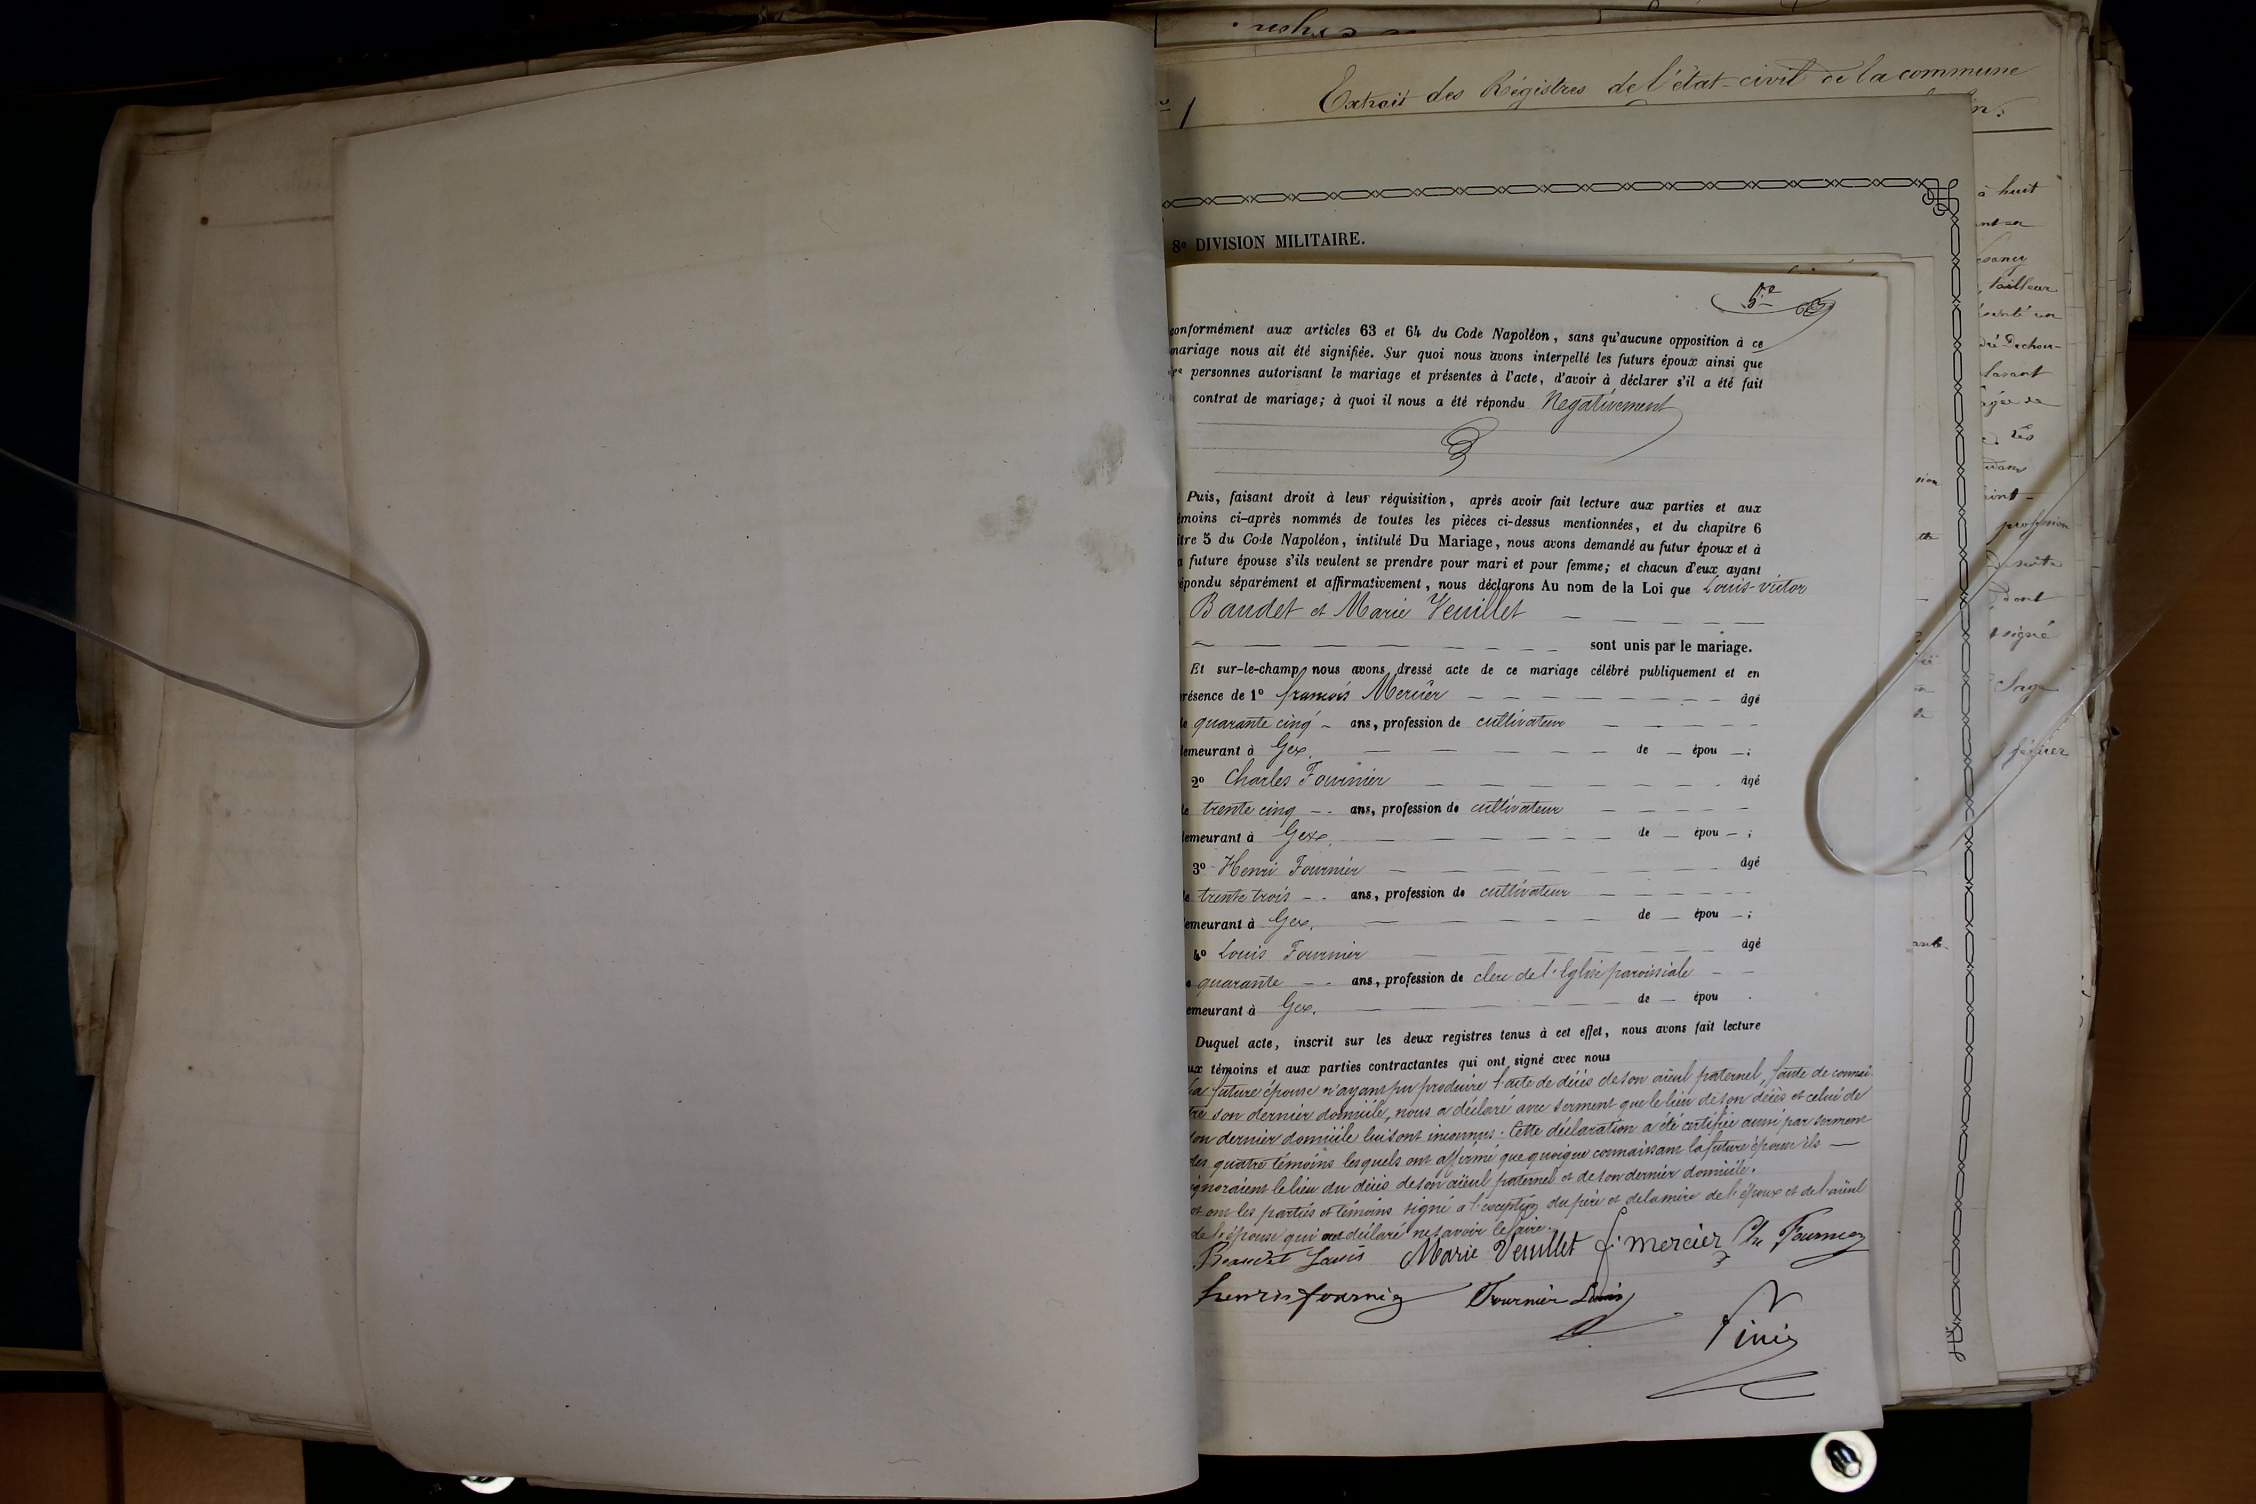 Extrait des Régistres de l'état-civil de la commune
1
à huit
8e DIVISION MILITAIRE.
tailleur
5
conformément aux articles 63 et 64 du Code Napoléon, sans qu'aucune opposition à ce
mariage nous ait été signifiée. Sur quoi nous avons interpellé les futurs époux ainsi que
personnes autorisant le mariage et présentes à l'acte, d'avoir à déclarer s'il a été fait
contrat de mariage; à quoi il nous a été répondu Negativement
Puis, faisant droit à leur réquisition, après avoir fait lecture aux parties et aux
émoins ci-après nommés de toutes les pièces ci-dessus mentionnées, et du chapitre 6
itre 5 du Code Napoléon, intitulé Du Mariage, nous avons demandé au futur époux et à
a future épouse s'ils veulent se prendre pour mari et pour femme; et chacun d'eux ayant
épondu séparément et affirmativement, nous déclarons Au nom de la Loi que Louis-victor
Baudet et Marie Veuillet
sont unis par le mariage.
Et sur-le-champ nous avons dressé acte de ce mariage célébré publiquement et en
résence de 1o françois Mercier âgé
de quarante cinq ans, profession de cultivateur
demeurant à Gex. de épou ;
2o Charles Fournier âgé
de trente cinq ans, profession de cultivateur
demeurant à Gex. de épou ;
3o Henri Fournier âgé
de trente trois ans, profession de cultivateur
demeurant à Gex. de épou ;
4o Louis Fournier âgé
quarante ans, profession de clerc de l'Eglise paroissiale
emeurant à Gex. de épou .
Duquel acte, inscrit sur les deux registres tenus à cet effet, nous avons fait lecture
ux témoins et aux parties contractantes qui ont signé avec nous
La future épouse n'ayant pu produire l'acte de décès de son aïeul paternel, faute de connaî-
tre son dernier domicile, nous a déclaré avec serment que le lieu de son décès et celui de
son dernier domicile lui sont inconnus. Cette déclaration a été certifiée aussi par serment
des quatre témoins lesquels ont affirmé que quoique connaissant la future épouse ils
ignoraient le lieu du décès de son aïeul paternel et de son dernier domicile.
et ont les parties et témoins signé à l'exception du père et de la mère de l'époux et de l'aïeul
de l'épouse qui ont déclaré ne savoir le faire.
Baudet Louis Marie Veuillet f. mercier Ch Fournier
henri fournier Fournier Louis
profession
dont
signé
février